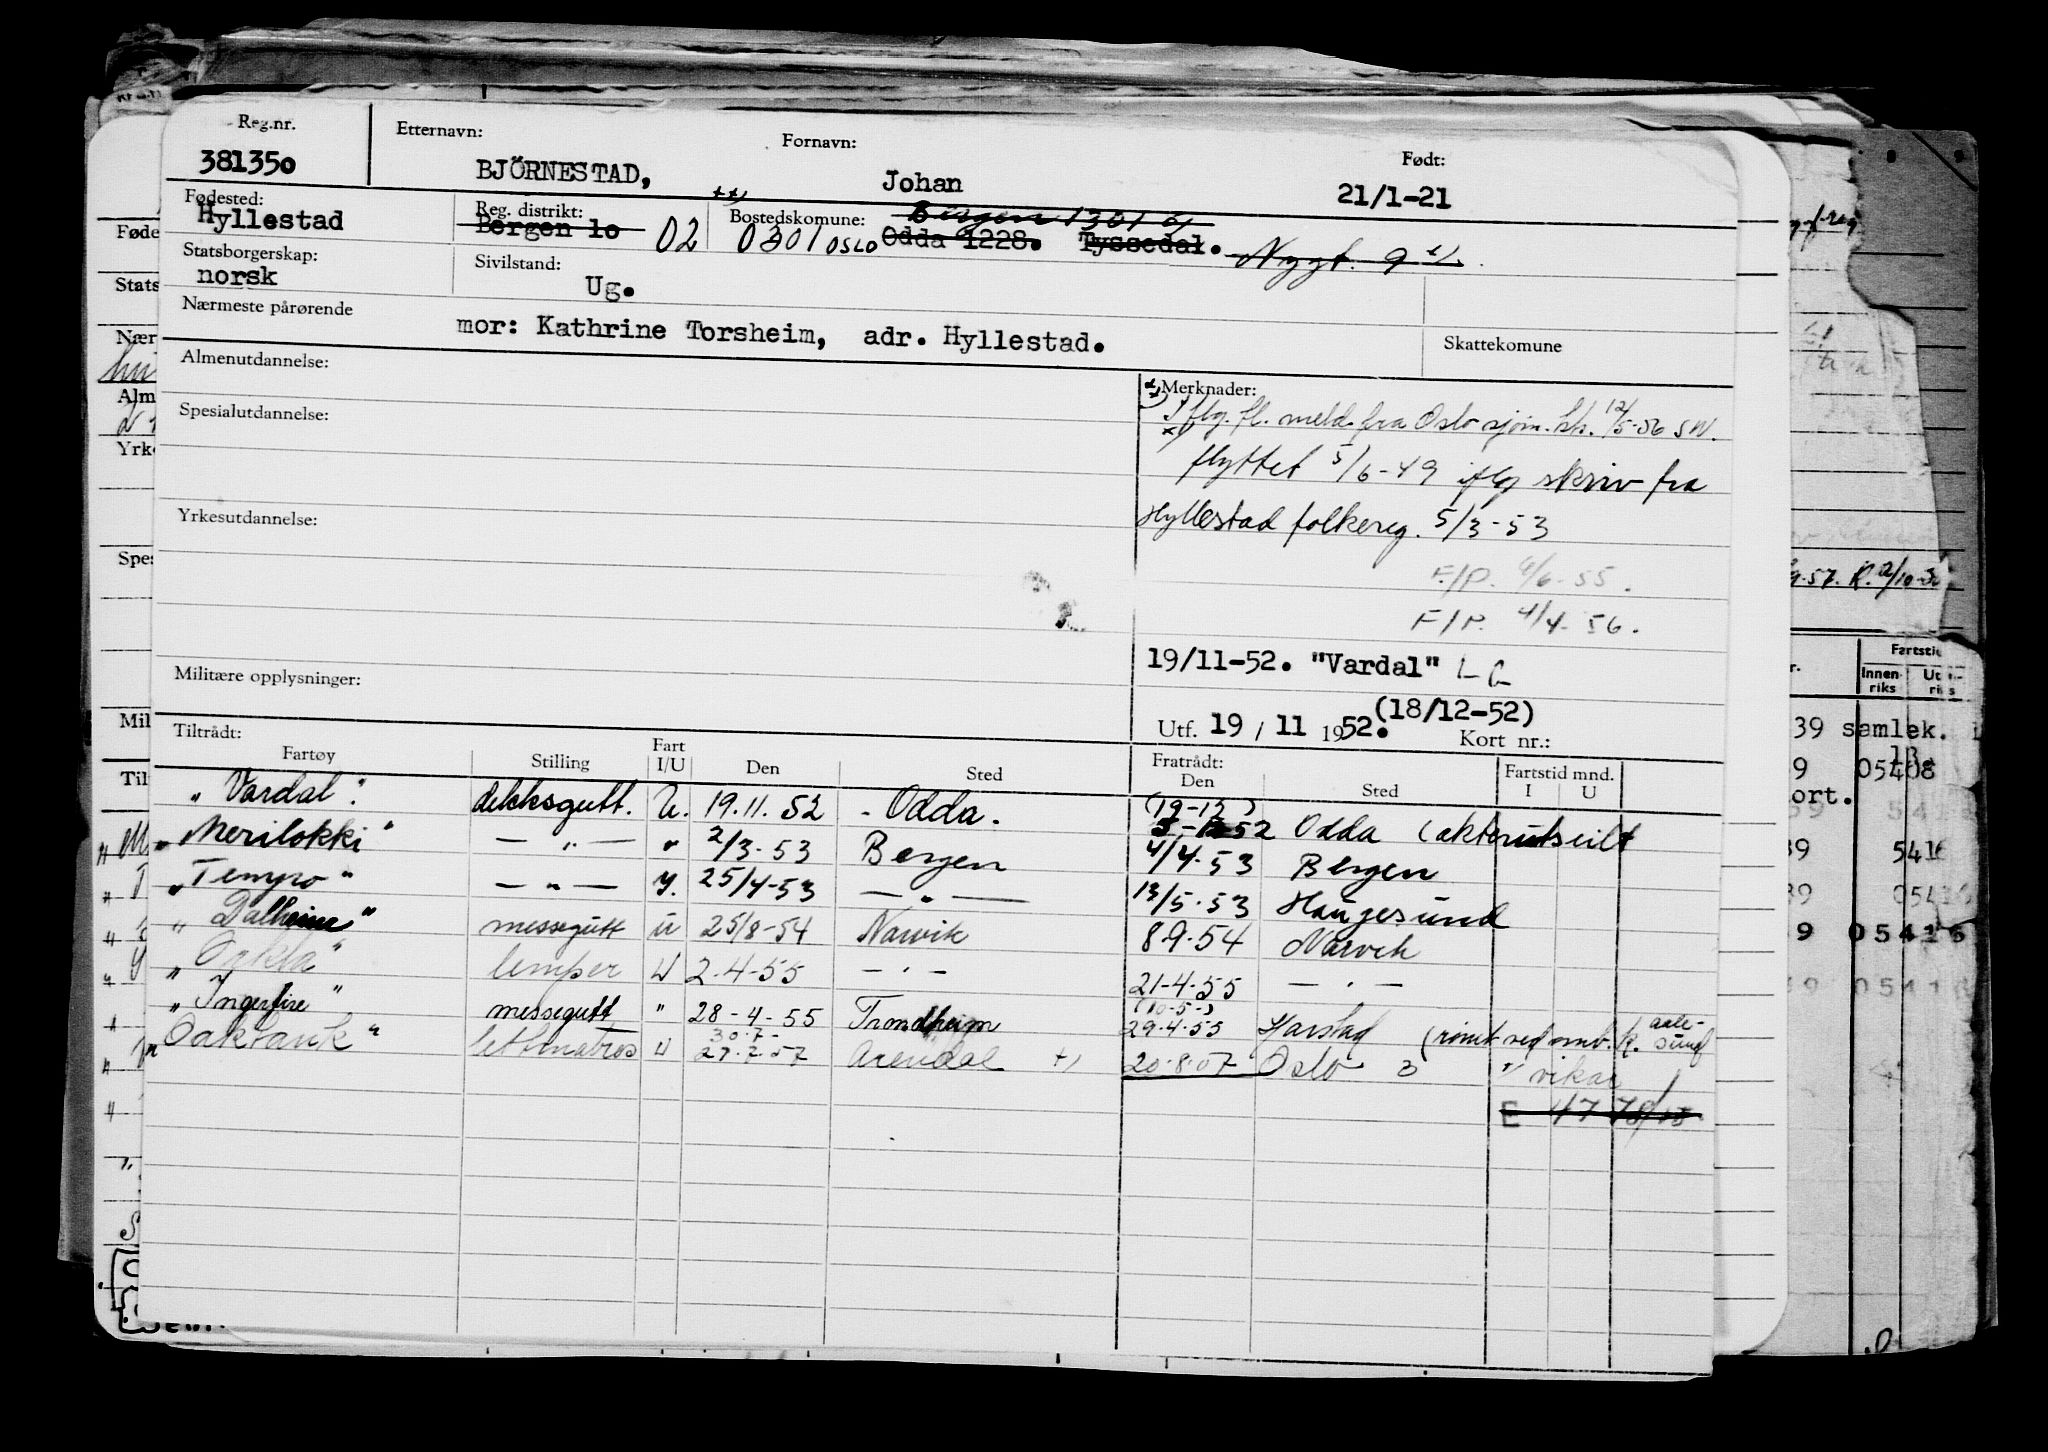 Reg.nr. Etternavn: Fornavn: Født:
381350 BJÖRNESTAD, Johan 21/1-21
Fødested: Reg. distrikt: Bostedskomune: Bergen 1301
Hyllestad Bergen 10 02 0301 OSLO Odda 1228. Tyssedal. Nygt. 9
Statsborgerskap: Sivilstand:
norsk Ug.
Nærmeste pårørende
mor: Kathrine Torsheim, adr. Hyllestad. Skattekomune
Almenutdannelse: Merknader:
Iflg. fl. meld. fra Oslo sjøm. kt. 12/5-56 SW.
Spesialutdannelse:
flyttet 5/6-49 iflg skriv fra
Yrkesutdannelse: Hyllestad folkereg. 5/3-53
F/P. 6/6-55.
F/P. 4/4-56.
19/11-52. "Vardal"
Militære opplysninger:
(18/12-52)
Utf. 19 / 11 1952. Kort nr.:
Tiltrådt: Fratrådt:
Fartøy Stilling Fart I/U Den Sted Den Sted Fartstid mnd. I U
"Vardal". dekksgutt. U. 19.11.52 - Odda. (19-12) 52 Odda (akterutseilt
"Merilokki" — " — " 2/3-53 Bergen 4/4-53 Bergen
"Tempo" — " — 25/4-53 — " — 13/5-53 Haugesund
"Dalheim" messegutt u 25/8-54 Narvik 8.9.54 Narvik
"Oakla" lemper U 2.4-55 — " — 21-4-55 — " —
"Ingerfire" messegutt " 28-4-55 Trondheim (10-5-) 29.4.55 Harstad (rømt ved omv. k. aale-
sund
30.7-
"Oaktank" lettmatros U 27.7.57 Arendal +) 20.8.57 Oslo 3 " vikar
E 47